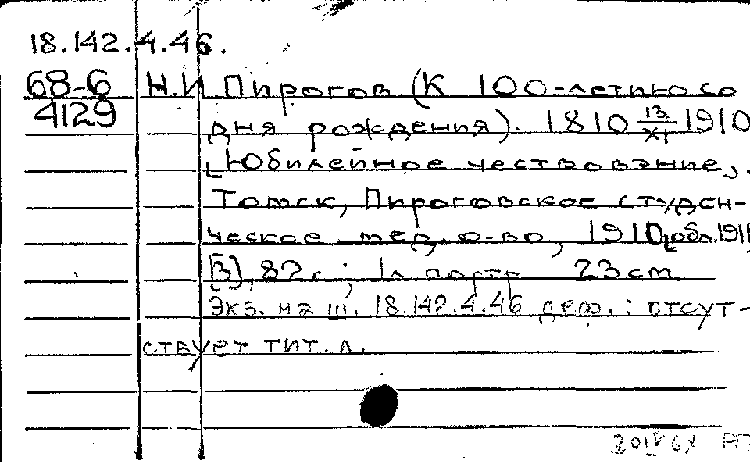 18.142.4.46.
68-6 Н.И Пирогов (К 100-летию со
4129 дня рождения). 1810 13/XI 1910
[Юбилейное чествование,
Томск, Пироговское студен-
ческое мед. о-во, 1910, обл. 1911
[3], 82 с.; 1 л портр 23 см
Экз. на ш. 18.142.4.46 деф.: отсут-
ствует тит. л.